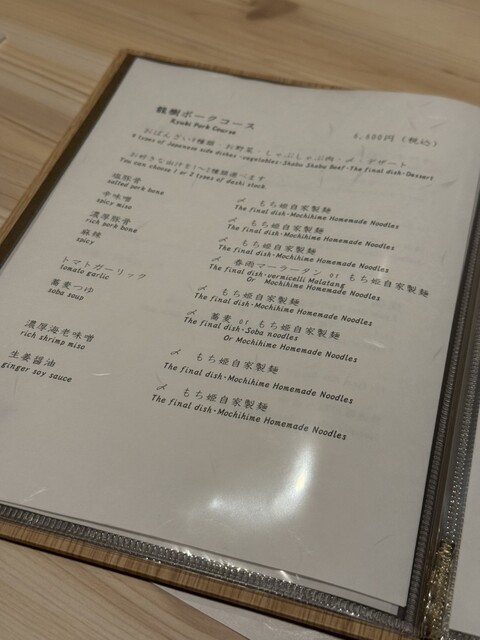 龍樹ポークコース 6,600円(税込)
Ryuki Pork Course
おばんざい4種類・お野菜・しゃぶしゃぶ肉・〆・デザート
4 types of Japanese side dishes・vegetables・Shabu Shabu Beef・The final dish・Dessert
お好きな出汁を1〜2種類選べます
You can choose 1 or 2 types of dashi stock.
塩豚骨 〆 もち姫自家製麺
salted pork bone The final dish・Mochihime Homemade Noodles
辛味噌 〆 もち姫自家製麺
spicy miso The final dish・Mochihime Homemade Noodles
濃厚豚骨 〆 もち姫自家製麺
rich pork bone The final dish・Mochihime Homemade Noodles
麻辣 〆 春雨マーラータン or もち姫自家製麺
spicy The final dish・vermicelli Malatang
Or Mochihime Homemade Noodles
トマトガーリック 〆 もち姫自家製麺
tomato garlic The final dish・Mochihime Homemade Noodles
蕎麦つゆ 〆 蕎麦 or もち姫自家製麺
soba soup The final dish・Soba noodles
Or Mochihime Homemade Noodles
濃厚海老味噌 〆 もち姫自家製麺
rich shrimp miso The final dish・Mochihime Homemade Noodles
生姜醤油 〆 もち姫自家製麺
ginger soy sauce The final dish・Mochihime Homemade Noodles